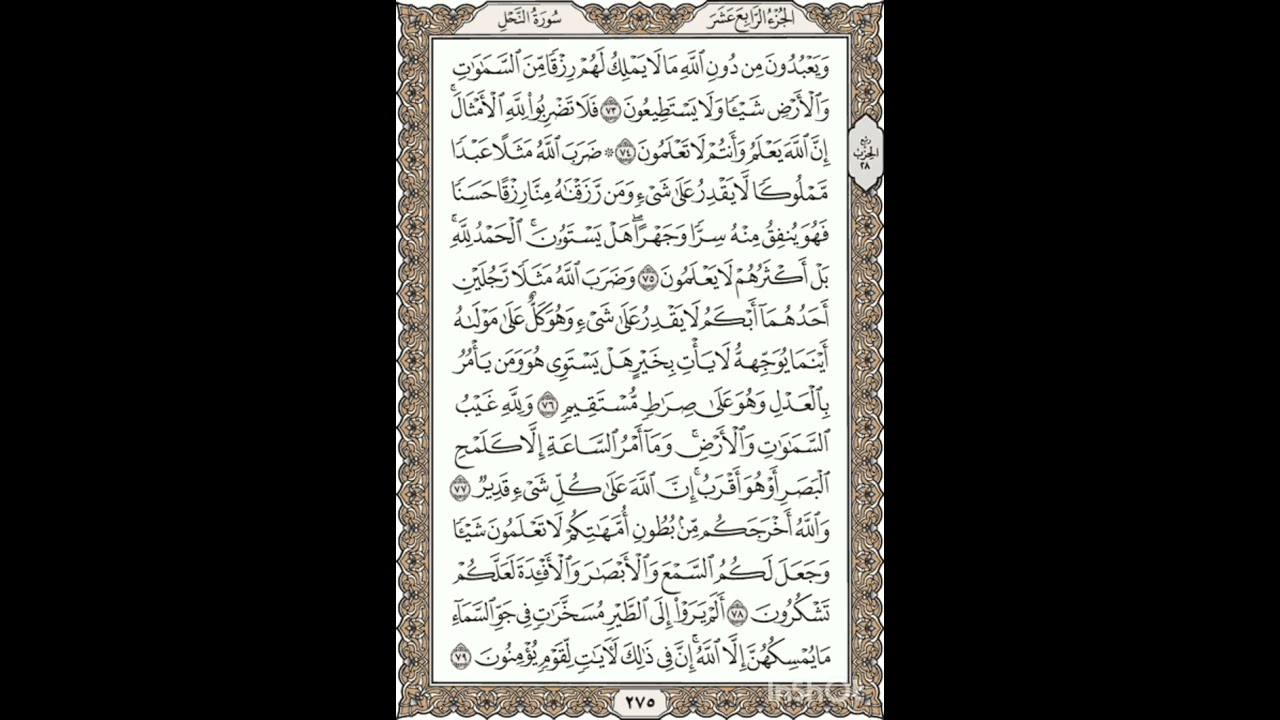 الجزء الرابع عشر
سورة النحل
وَيَعْبُدُونَ مِن دُونِ ٱللَّهِ مَا لَا يَمْلِكُ لَهُمْ رِزْقًا مِّنَ ٱلسَّمَٰوَٰتِ
وَٱلْأَرْضِ شَيْـًٔا وَلَا يَسْتَطِيعُونَ ٧٣ فَلَا تَضْرِبُوا۟ لِلَّهِ ٱلْأَمْثَالَ ۚ
إِنَّ ٱللَّهَ يَعْلَمُ وَأَنتُمْ لَا تَعْلَمُونَ ٧٤ ۞ ضَرَبَ ٱللَّهُ مَثَلًا عَبْدًا
مَّمْلُوكًا لَّا يَقْدِرُ عَلَىٰ شَىْءٍ وَمَن رَّزَقْنَٰهُ مِنَّا رِزْقًا حَسَنًا
فَهُوَ يُنفِقُ مِنْهُ سِرًّا وَجَهْرًا ۖ هَلْ يَسْتَوُۥنَ ۚ ٱلْحَمْدُ لِلَّهِ ۚ
بَلْ أَكْثَرُهُمْ لَا يَعْلَمُونَ ٧٥ وَضَرَبَ ٱللَّهُ مَثَلًا رَّجُلَيْنِ
أَحَدُهُمَآ أَبْكَمُ لَا يَقْدِرُ عَلَىٰ شَىْءٍ وَهُوَ كَلٌّ عَلَىٰ مَوْلَىٰهُ
أَيْنَمَا يُوَجِّههُّ لَا يَأْتِ بِخَيْرٍ هَلْ يَسْتَوِى هُوَ وَمَن يَأْمُرُ
بِٱلْعَدْلِ وَهُوَ عَلَىٰ صِرَٰطٍ مُّسْتَقِيمٍ ٧٦ وَلِلَّهِ غَيْبُ
ٱلسَّمَٰوَٰتِ وَٱلْأَرْضِ ۚ وَمَآ أَمْرُ ٱلسَّاعَةِ إِلَّا كَلَمْحِ
ٱلْبَصَرِ أَوْ هُوَ أَقْرَبُ ۚ إِنَّ ٱللَّهَ عَلَىٰ كُلِّ شَىْءٍ قَدِيرٌ ٧٧
وَٱللَّهُ أَخْرَجَكُم مِّنۢ بُطُونِ أُمَّهَٰتِكُمْ لَا تَعْلَمُونَ شَيْـًٔا
وَجَعَلَ لَكُمُ ٱلسَّمْعَ وَٱلْأَبْصَٰرَ وَٱلْأَفْـِٔدَةَ لَعَلَّكُمْ
تَشْكُرُونَ ٧٨ أَلَمْ يَرَوْا۟ إِلَى ٱلطَّيْرِ مُسَخَّرَٰتٍ فِى جَوِّ ٱلسَّمَآءِ
مَا يُمْسِكُهُنَّ إِلَّا ٱللَّهُ ۗ إِنَّ فِى ذَٰلِكَ لَءَايَٰتٍ لِّقَوْمٍ يُؤْمِنُونَ ٧٩
ربع
الحزب
٢٨
٢٧٥
InShOt